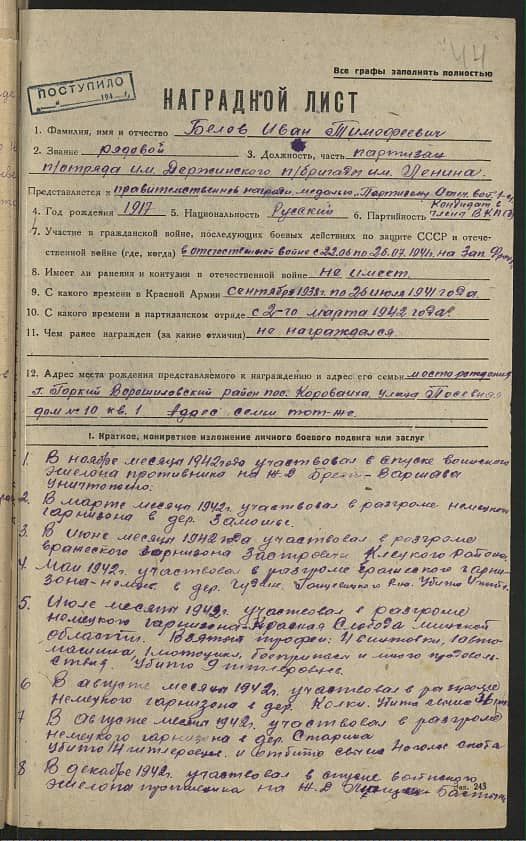 44
Все графы заполнять полностью
ПОСТУПИЛО
194 г.
НАГРАДНОЙ ЛИСТ
1. Фамилия, имя и отчество Белов Иван Тимофеевич
2. Звание рядовой 3. Должность, часть партизан
п/отряда им. Держинского п/бригады им. Ленина.
Представляется к правительственной награде, медаль „Партизану Отеч. вой. 1-й ст.
4. Год рождения 1917 5. Национальность Русский 6. Партийность Кандидат в члены ВКП(б)
7. Участие в гражданской войне, последующих боевых действиях по защите СССР и отече-
ственной войне (где, когда) в отечественной войне с 22.06 по 26.07.1941г. на Зап. Фронте
8. Имеет ли ранения и контузии в отечественной войне не имеет
9. С какого времени в Красной Армии сентября 1938г. по 26 июля 1941 года
10. С какого времени в партизанском отряде с 2-го марта 1942 года
11. Чем ранее награжден (за какие отличия) не награждался
12. Адрес места рождения представляемого к награждению и адрес его семьи место рождения
г. Горкий Ворошиловский район пос. Короваиха, улица Посевная
дом № 10 кв. 1 Адрес семьи тот-же.
I. Краткое, конкретное изложение личного боевого подвига или заслуг
1. В ноябре месяца 1942 года участвовал в спуске воинского
эшелона противника на Ж.Д. Брест-Варшава
уничтожено:
2. В марте месяца 1942г. участвовал в разгроме немецкого
гарнизона в дер. Замошье.
3. В Июне месяца 1942 года участвовал в разгроме
вражеского гарнизона Клецкого района
4 Мая 1942г. участвовал в разгроме вражеского гарни-
зона в дер.
5. Июле месяца 1942г. участвовал в разгроме
немецкого гарнизона Красная Слобода минской
области. Взятой трофеи: винтовки, 1 авто-
машина, 1 мотоцикл, боеприпасы и много продоволь-
ствия. Убито 9 гитлеровцев.
6 В августе месяца 1942г. участвовал в разгроме
немецкого гарнизона в дер. Колки. Убито свыше
7 В Августе месяца 1942г. участвовал в разгроме
немецкого гарнизона в дер. Старица
убито 14 гитлеровцев. и отбито свыше голов скота
8 В декабре 1942г. участвовал в спуске воинского
эшелона противника на Ж.Д
Зак. 243